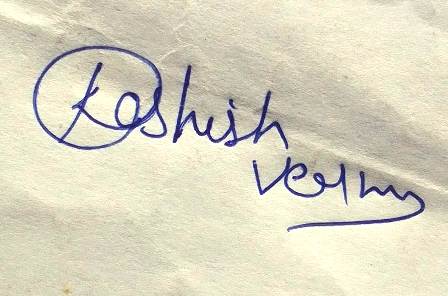 Kashish
Verma